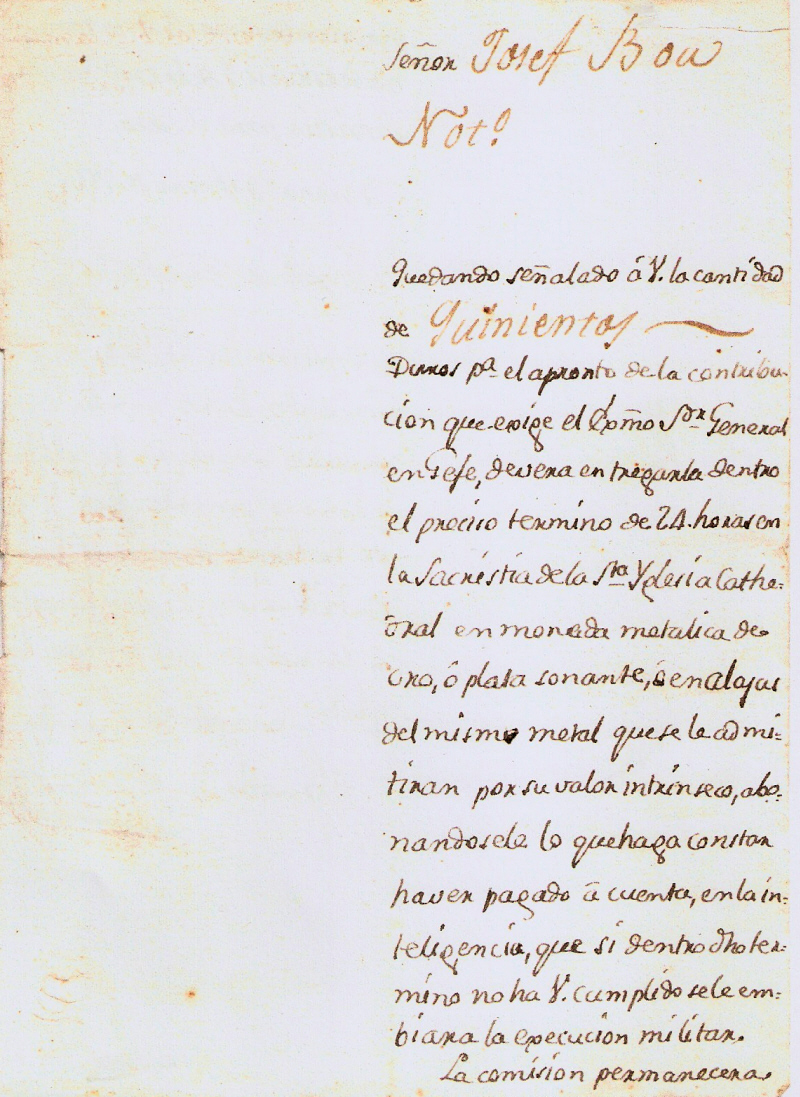 Señor Josef Bou
Not.º
Quedando señalado á V. la cantidad
de Quinientos
Duros p.ª el apronto de la contribu-
cion que exige el Exmo S.or General
en Gefe, devera entregarla dentro
el preciso termino de 24. horas en
la Sacristia de la S.ta Yglesia Cathe-
dral en moneda metalica de
oro, ó plata sonante, ó en alajas
del mismo metal que se le admi-
tiran por su valor intrinseco, abo-
nandosele lo que haga constar
haver pagado á cuenta, en la in-
teligencia, que si dentro dho ter-
mino no ha V. cumplido se le em-
biara la execucion militar.
La comision permanecera